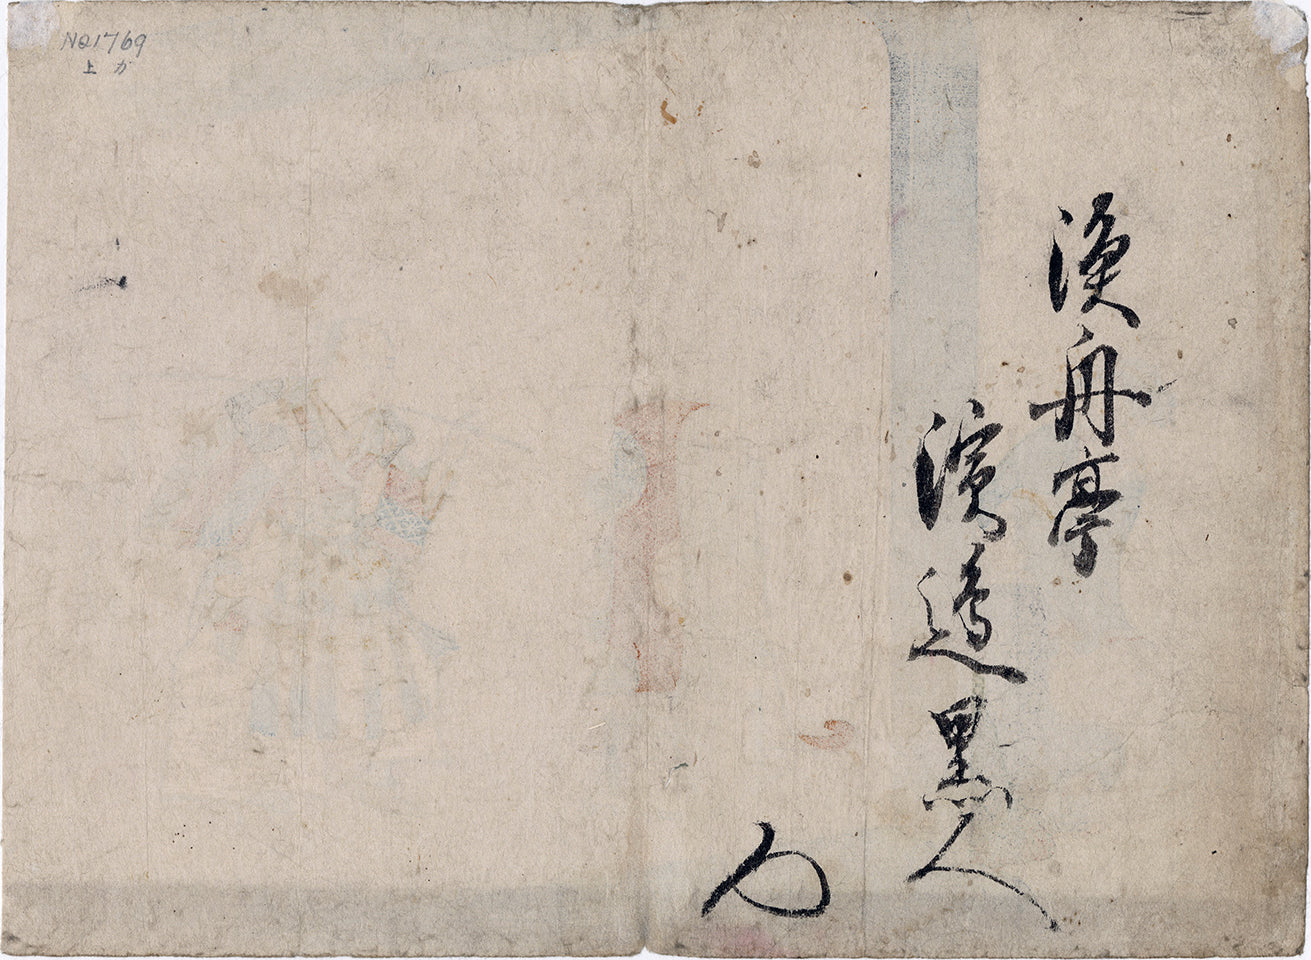 漁舟亭
濱邉黒人
No1769
上 カ